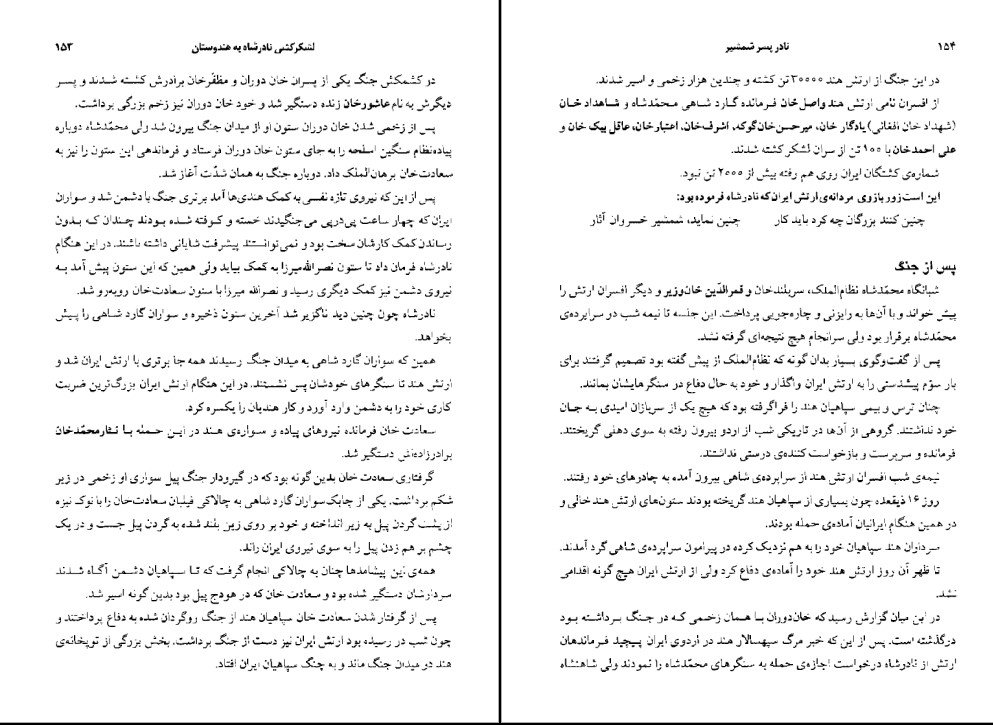 لشگرکشی نادرشاه به هندوستان ۱۵۳
در کشمکش جنگ یکی از پسران خان دوران و مظفّرخان برادرش کشته شدند و پسر
دیگرش به نام عاشورخان زنده دستگیر شد و خود خان دوران نیز زخم بزرگی برداشت.
پس از زخمی شدن خان دوران ستون او از میدان جنگ بیرون شد ولی محمّدشاه دوباره
پیاده‌نظام سنگین اسلحه را به جای ستون خان دوران فرستاد و فرماندهی این ستون را نیز به
سعادت‌خان برهان‌الملک داد. دوباره جنگ به همان شدّت آغاز شد.
پس از این که نیروی تازه نفسی به کمک هندی‌ها آمد برتری جنگ با دشمن شد و سواران
ایران که چهار ساعت پی‌درپی می‌جنگیدند خسته و کوفته شده بودند چندان که بدون
رساندن کمک کارشان سخت بود و نمی‌توانستند پیشرفت شایانی داشته باشند. در این هنگام
نادرشاه فرمان داد تا ستون نصرالله‌میرزا به کمک بیاید ولی همین که این ستون پیش آمد به
نیروی دشمن نیز کمک دیگری رسید و نصرالله میرزا با ستون سعادت‌خان روبه‌رو شد.
نادرشاه چون چنین دید ناگزیر شد آخرین ستون ذخیره و سواران گارد شاهی را پیش
بخواهد.
همین که سواران گارد شاهی به میدان جنگ رسیدند همه جا برتری با ارتش ایران شد و
ارتش هند تا سنگرهای خودشان پس نشستند. در این هنگام ارتش ایران بزرگ‌ترین ضربت
کاری خود را به دشمن وارد آورد و کار هندیان را یکسره کرد.
سعادت خان فرمانده نیروهای پیاده و سواره‌ی هند در این حمله با نثارمحمّدخان
برادرزاده‌اش دستگیر شد.
گرفتاری سعادت خان بدین گونه بود که در گیرودار جنگ پیل سواری او زخمی در زیر
شکم برداشت. یکی از چابک‌سواران گارد شاهی به چالاکی فیلبان سعادت‌خان را با نوک نیزه
از پشت گردن پیل به زیر انداخته و خود بر روی زین بلند شده به گردن پیل جست و در یک
چشم بر هم زدن پیل را به سوی نیروی ایران راند.
همه‌ی این پیشامدها چنان به چالاکی انجام گرفت که تا سپاهیان دشمن آگاه شدند
سردارشان دستگیر شده بود و سعادت خان که در هودج پیل بود بدین گونه اسیر شد.
پس از گرفتار شدن سعادت خان سپاهیان هند از جنگ روگردان شده به دفاع پرداختند و
چون شب در رسیده بود ارتش ایران نیز دست از جنگ برداشت. بخش بزرگی از توپخانه‌ی
هند در میدان جنگ ماند و به چنگ سپاهیان ایران افتاد.
۱۵۴ نادر پسر شمشیر
در این جنگ از ارتش هند ۳۰۰۰۰ تن کشته و چندین هزار زخمی و اسیر شدند.
از افسران نامی ارتش هند واصل‌خان فرمانده گارد شاهی محمّدشاه و شاهداد خان
(شهداد خان افغانی) یادگار خان، میرحسن‌خان‌گوکه، اشرف‌خان، اعتبارخان، عاقل بیک خان و
علی احمدخان با ۱۰۰ تن از سران لشکر کشته شدند.
شماره‌ی کشتگان ایران روی هم رفته بیش از ۲۰۰۰ تن نبود.
این است زور بازوی مردانه‌ی ارتش ایران که نادرشاه فرموده بود:
چنین کنند بزرگان چه کرد باید کار چنین نماید، شمشیر خسروان آثار
پس از جنگ
شبانگاه محمّدشاه نظام‌الملک، سربلندخان و قمرالدّین خان‌وزیر و دیگر افسران ارتش را
پیش خواند و با آن‌ها به رایزنی و چاره‌جویی پرداخت. این جلسه تا نیمه شب در سراپرده‌ی
محمّدشاه برقرار بود ولی سرانجام هیچ نتیجه‌ای گرفته نشد.
پس از گفت‌وگوی بسیار بدان گونه که نظام‌الملک از پیش گفته بود تصمیم گرفتند برای
بار سوّم پیشدستی را به ارتش ایران واگذار و خود به حال دفاع در سنگرهایشان بمانند.
چنان ترس و بیمی سپاهیان هند را فراگرفته بود که هیچ یک از سربازان امیدی به جان
خود نداشتند. گروهی از آن‌ها در تاریکی شب از اردو بیرون رفته به سوی دهلی گریختند.
فرمانده و سرپرست و بازخواست کننده‌ی درستی نداشتند.
نیمه‌ی شب افسران ارتش هند از سراپرده‌ی شاهی بیرون آمده به چادرهای خود رفتند.
روز ۱۶ ذیقعده چون بسیاری از سپاهیان هند گریخته بودند ستون‌های ارتش هند خالی و
در همین هنگام ایرانیان آماده‌ی حمله بودند.
سرداران هند سپاهیان خود را به هم نزدیک کرده در پیرامون سراپرده‌ی شاهی گرد آمدند.
تا ظهر آن روز ارتش هند خود را آماده‌ی دفاع کرد ولی از ارتش ایران هیچ گونه اقدامی
نشد.
در این میان گزارش رسید که خان‌دوران با همان زخمی که در جنگ برداشته بود
درگذشته است. پس از این که خبر مرگ سپهسالار هند در اردوی ایران پیچید فرماندهان
ارتش از نادرشاه درخواست اجازه‌ی حمله به سنگرهای محمّدشاه را نمودند ولی شاهنشاه